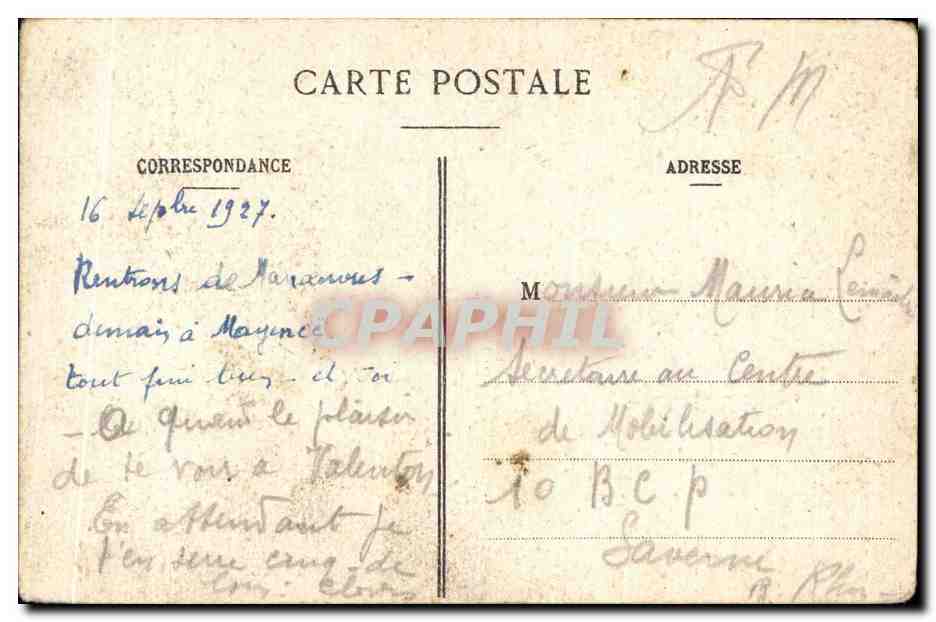 CARTE POSTALE
F M
CORRESPONDANCE
ADRESSE
16 Sepbre 1927.
Rentrons de Manœuvres -
demain à Mayence
tout fini bien - et toi
- A quand le plaisir
de te voir a Valenton
En attendant je
t'en serre cinq de
loin. Clovis
Monsieur Maurice
Secretaire au Centre
de Mobilisation
10 B C P
Saverne
B. Rhin
CPAPHIL